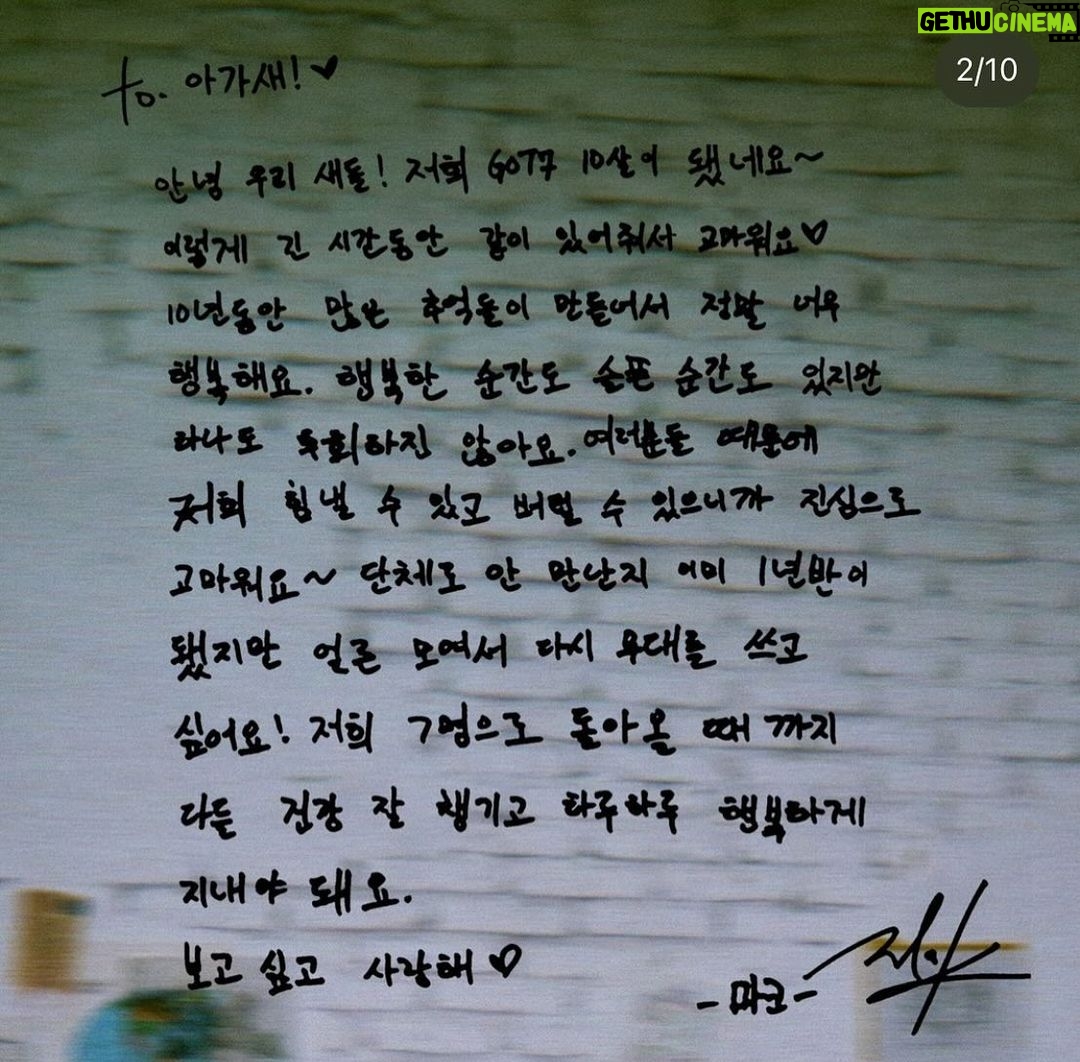 GETHUCINEMA
2/10
to. 아가새!♥
안녕 우리 새들! 저희 GOT7 10살이 됐네요~
이렇게 긴 시간동안 같이 있어줘서 고마워요♡
10년동안 많은 추억들이 만들어서 정말 너무
행복해요. 행복한 순간도 슬픈 순간도 있지만
하나도 후회하진 않아요. 여러분들 때문에
저희 힘낼 수 있고 버틸 수 있으니까 진심으로
고마워요~ 단체로 안 만난지 이미 1년반이
됐지만 얼른 모여서 다시 무대를 쓰고
싶어요! 저희 7명으로 돌아올 때 까지
다들 건강 잘 챙기고 하루하루 행복하게
지내야 돼요.
보고 싶고 사랑해♡
-마크-